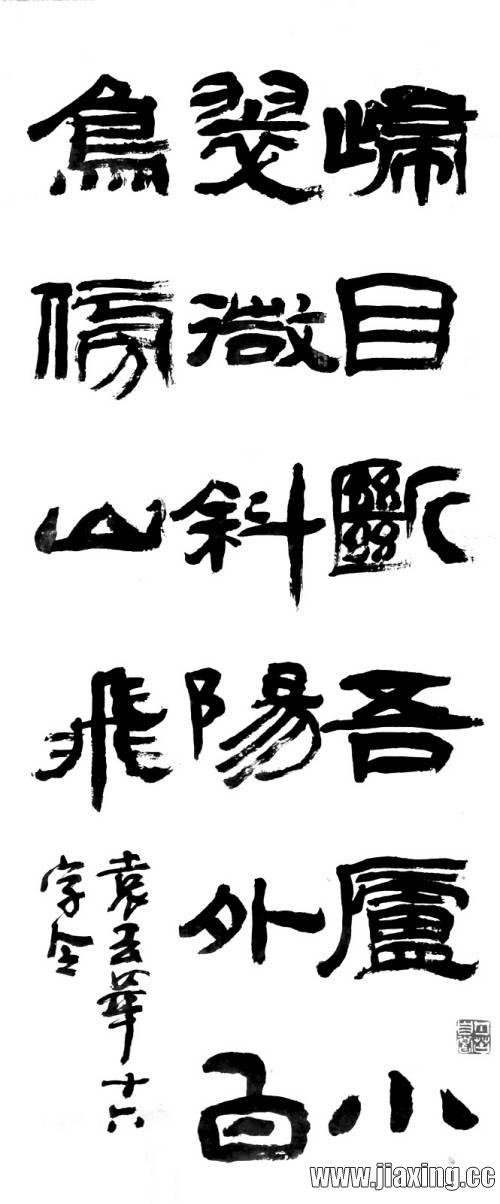 歸目斷吾廬小
翠微斜陽外白
鳥傍山飛
袁去華十六
字令
www.jiaxing.cc